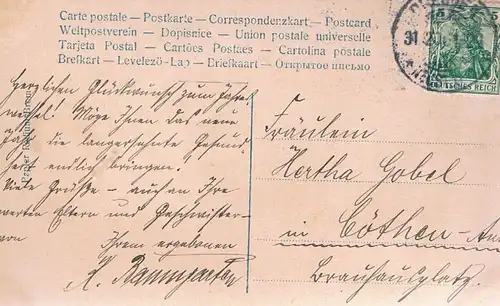 Carte postale — Postkarte — Correspondenzkart — Postcard
Weltpostverein — Dopisnice — Union postale universelle
Tarjeta Postal — Cartões Postaes — Cartolina postale
Brefkart — Levelezö-Lap — Briefkaart — Открытое письмо
31
DEUTSCHES REICH
Herzlichen Glückwunsch zum Jahres
wechsel! Möge Ihnen das neue
Jahr die langersehnte Gesund
heit endlich bringen.
Viele Grüße — auch an Ihre
werten Eltern und Geschwister —
von
Ihrem ergebenen
K. Baumgarten
Fräulein
Hertha Gobel
in Cöthen-An
Brauhausplatz.